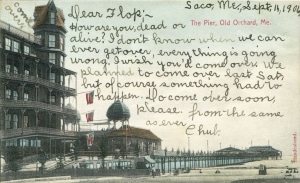 Saco, Me, Sept 14, 190
Dear Flop;-
The Pier, Old Orchard, Me.
How are you, dead or
alive? I don't know when we can
ever get over, every thing is going
wrong. I wish you'd come over. We
planned to come over last Sat.
but of course something had to
happen. Do come over soon,
please. from the same
as ever
Chub.